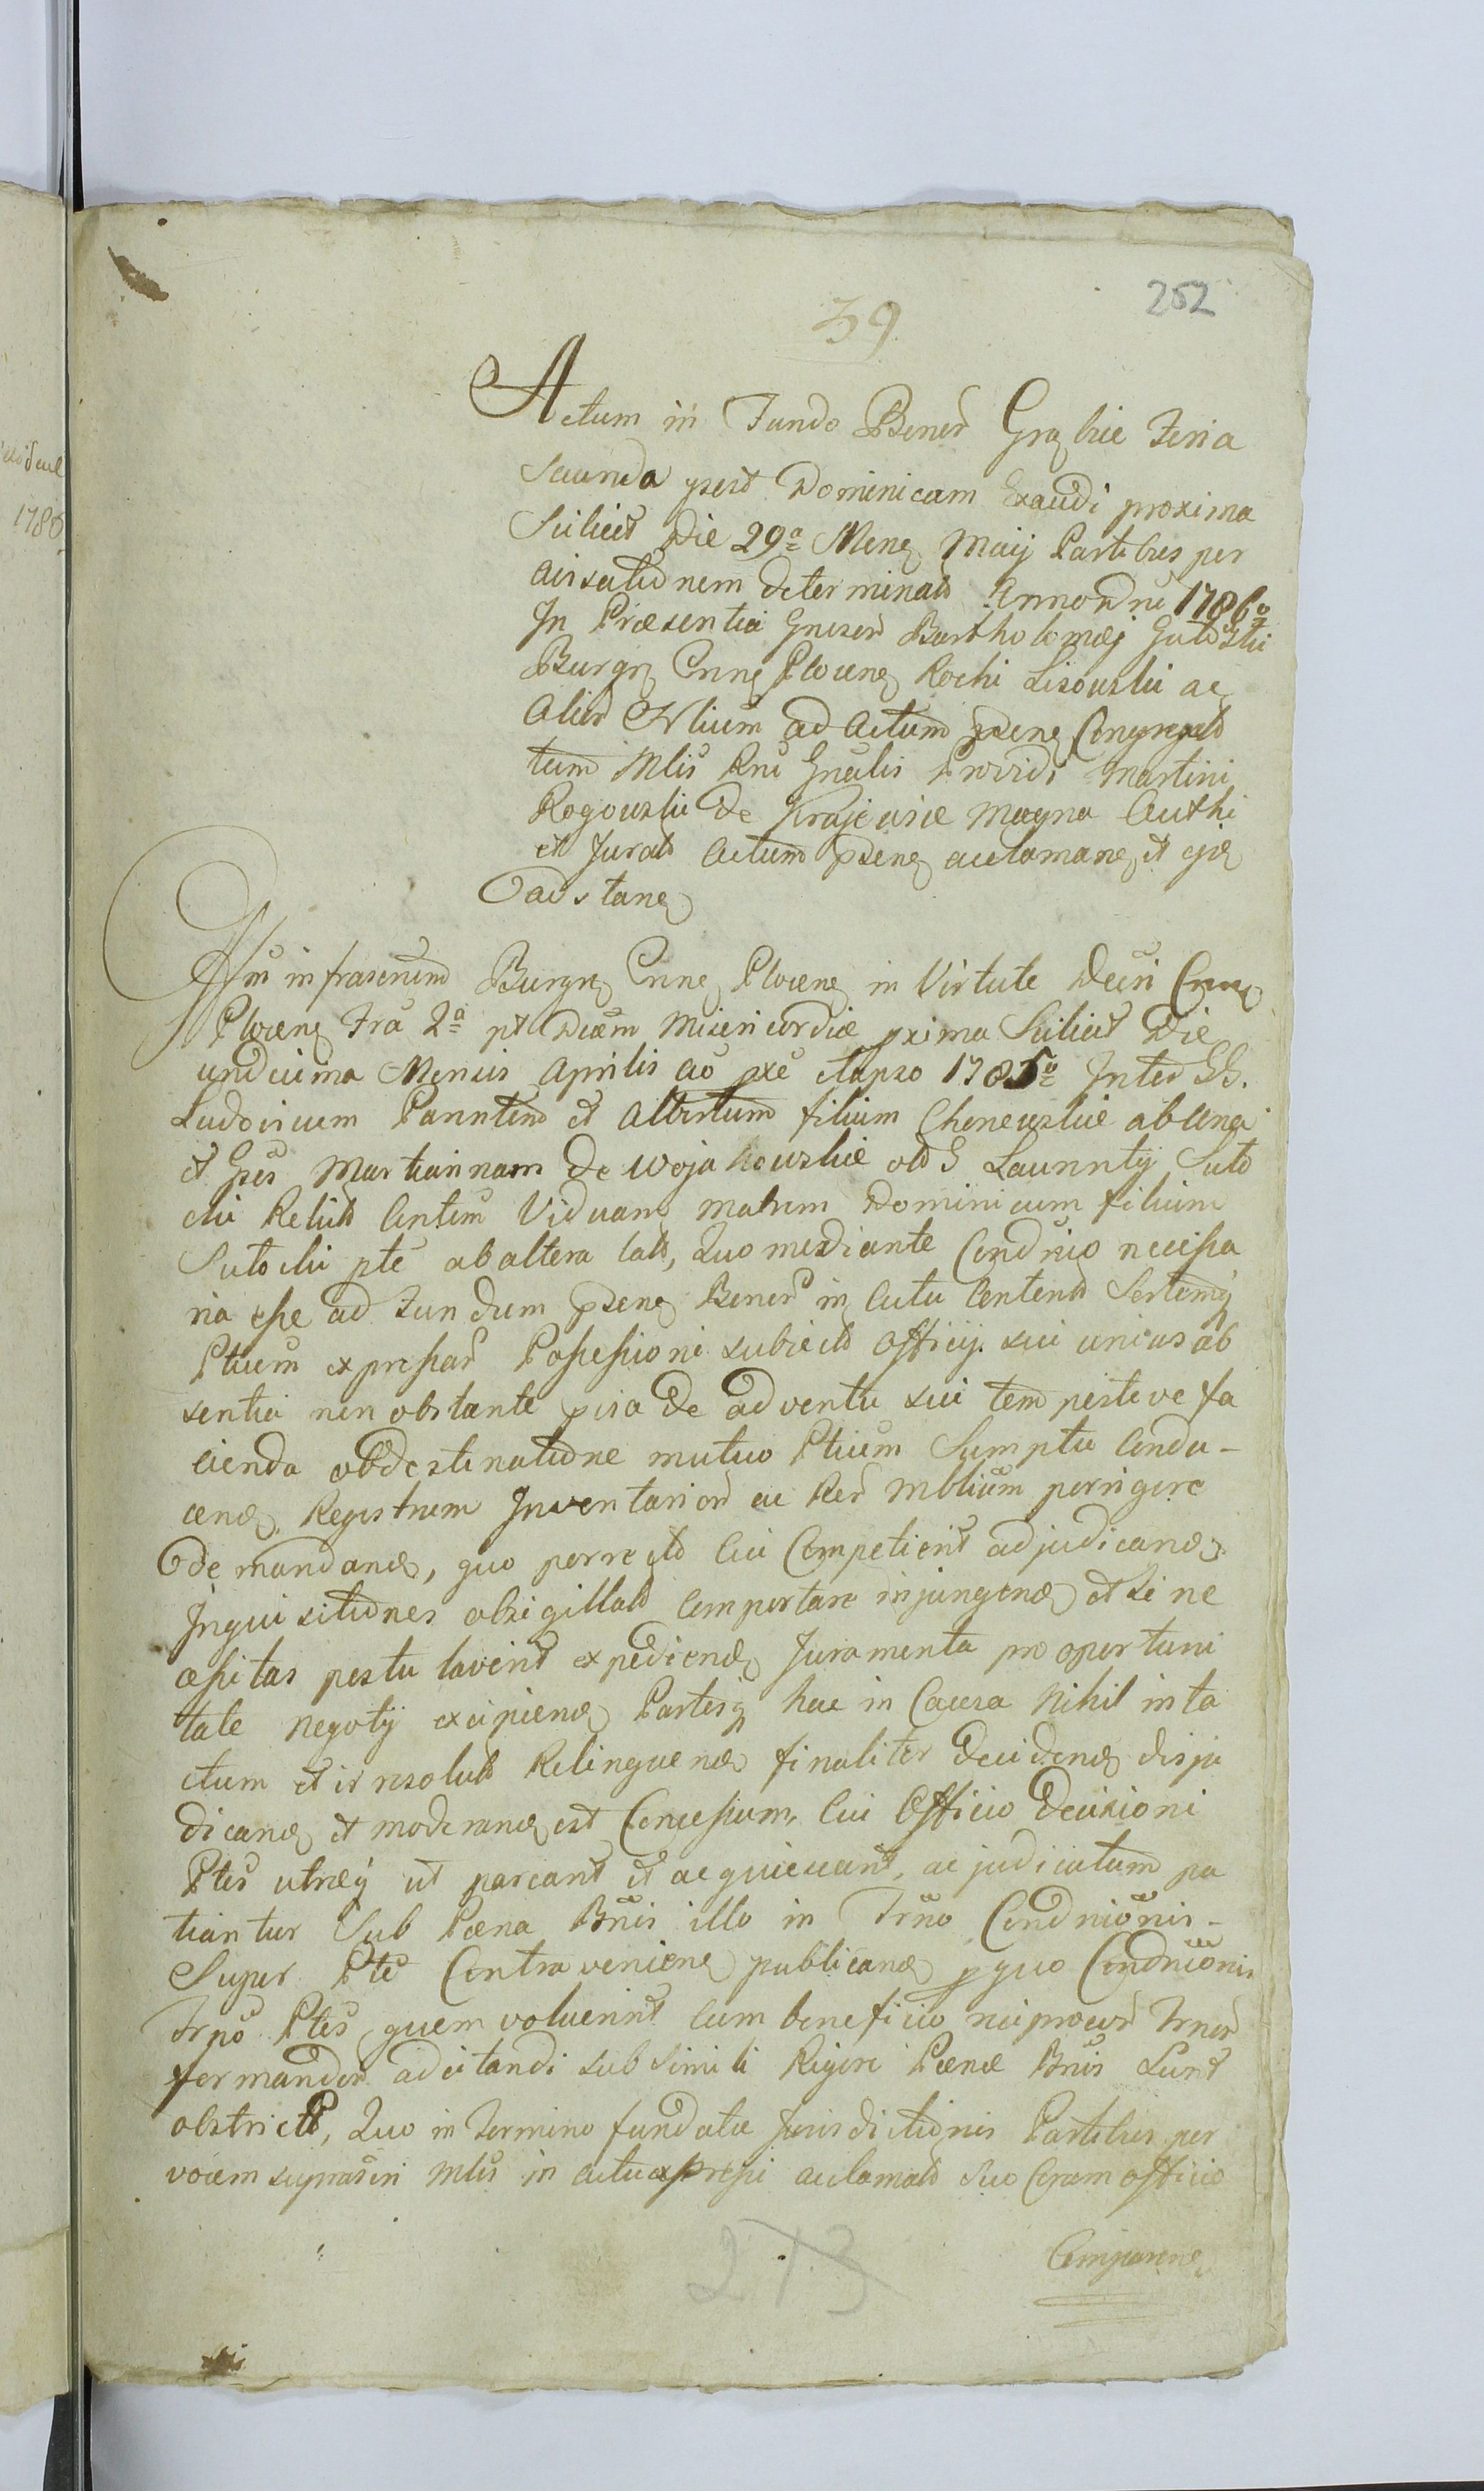 252
39.
Actum in Fundo Bonor Grąbie Feria
Secunda post Dominicam Exaudi proxima
Scilicet Die 29a Mens Maij Partibus per
avizationem determinat Anno Dni 1786o
In Præsentia Gnesor Bartholomæj Gutoski
Burgr Cnns Plocens Rochi Lisowski ac
Alior Nlium ad Actum pdens Congregat
tum Mlis Rni Gnealis Providi Martini
Rogowski de Krajewice Magna Authi
et Jurat Actum pdens acclamans et cie
adstans
Nos infrascrium Burgrs Cnns Plocens in Virtute Decri Cnns
Plocens Fra 2a pt Dcam Misericordiæ pxima Scilicet Die
undecima Mensis Aprilis ao pxe elapso 1785o Inter GG.
Ludovicum Parentem et Albertum filium Chonewskie ab una
et Gses Mariannam de Wojakowskie olo G Laurnty Suto
cki Relict Contem Viduam matrem Dominicum filium
Sutocki pte ab altera lats, Quo mediante Condnio necessa
ria esse ad Fundum pdens Bonor in Cutu Content Sortemq
Ptium expressar Possessioni subiect Officij sui unius ab
sentia non obstante pvia de adventu sui tempestive fa
cienda obdestinatione mutuo Ptium Sumptu Condu-
cend, Registrum Inventarior ac Rer Mblium porrigere
demandand, quo porrecto Cui Competierit adjudicand
Inquisitiones obsigillat Comportare injungend et si ne
cessitas postulaverit expediend Juramenta pro oportuni
tate negoty excipiend Partesq hac in Causa Nihil inta
ctum et irresolut Relinquend finaliter Decidend disju
dicand et moderand est Concessum, Cui Officio Decisioni
Ptes utræq ut pareant et acquiescant, ac judicatum pa
tiantur Sub Pæna Bnis illo in Trno Condnionis-
Super Pte Contraveniens publicand p quo Condnionis
Trno Ptes quem voluerint cum beneficio reciprocor Trnor
formandor adcitandi sub simili Rigore Pænæ Bnis Sunt
obstrict, Quo in Termino fundatæ Jurisdictionis Partibus per
vocem suprascri Mlis in actu expressi acclamat suo Coram officio
Comparens
273